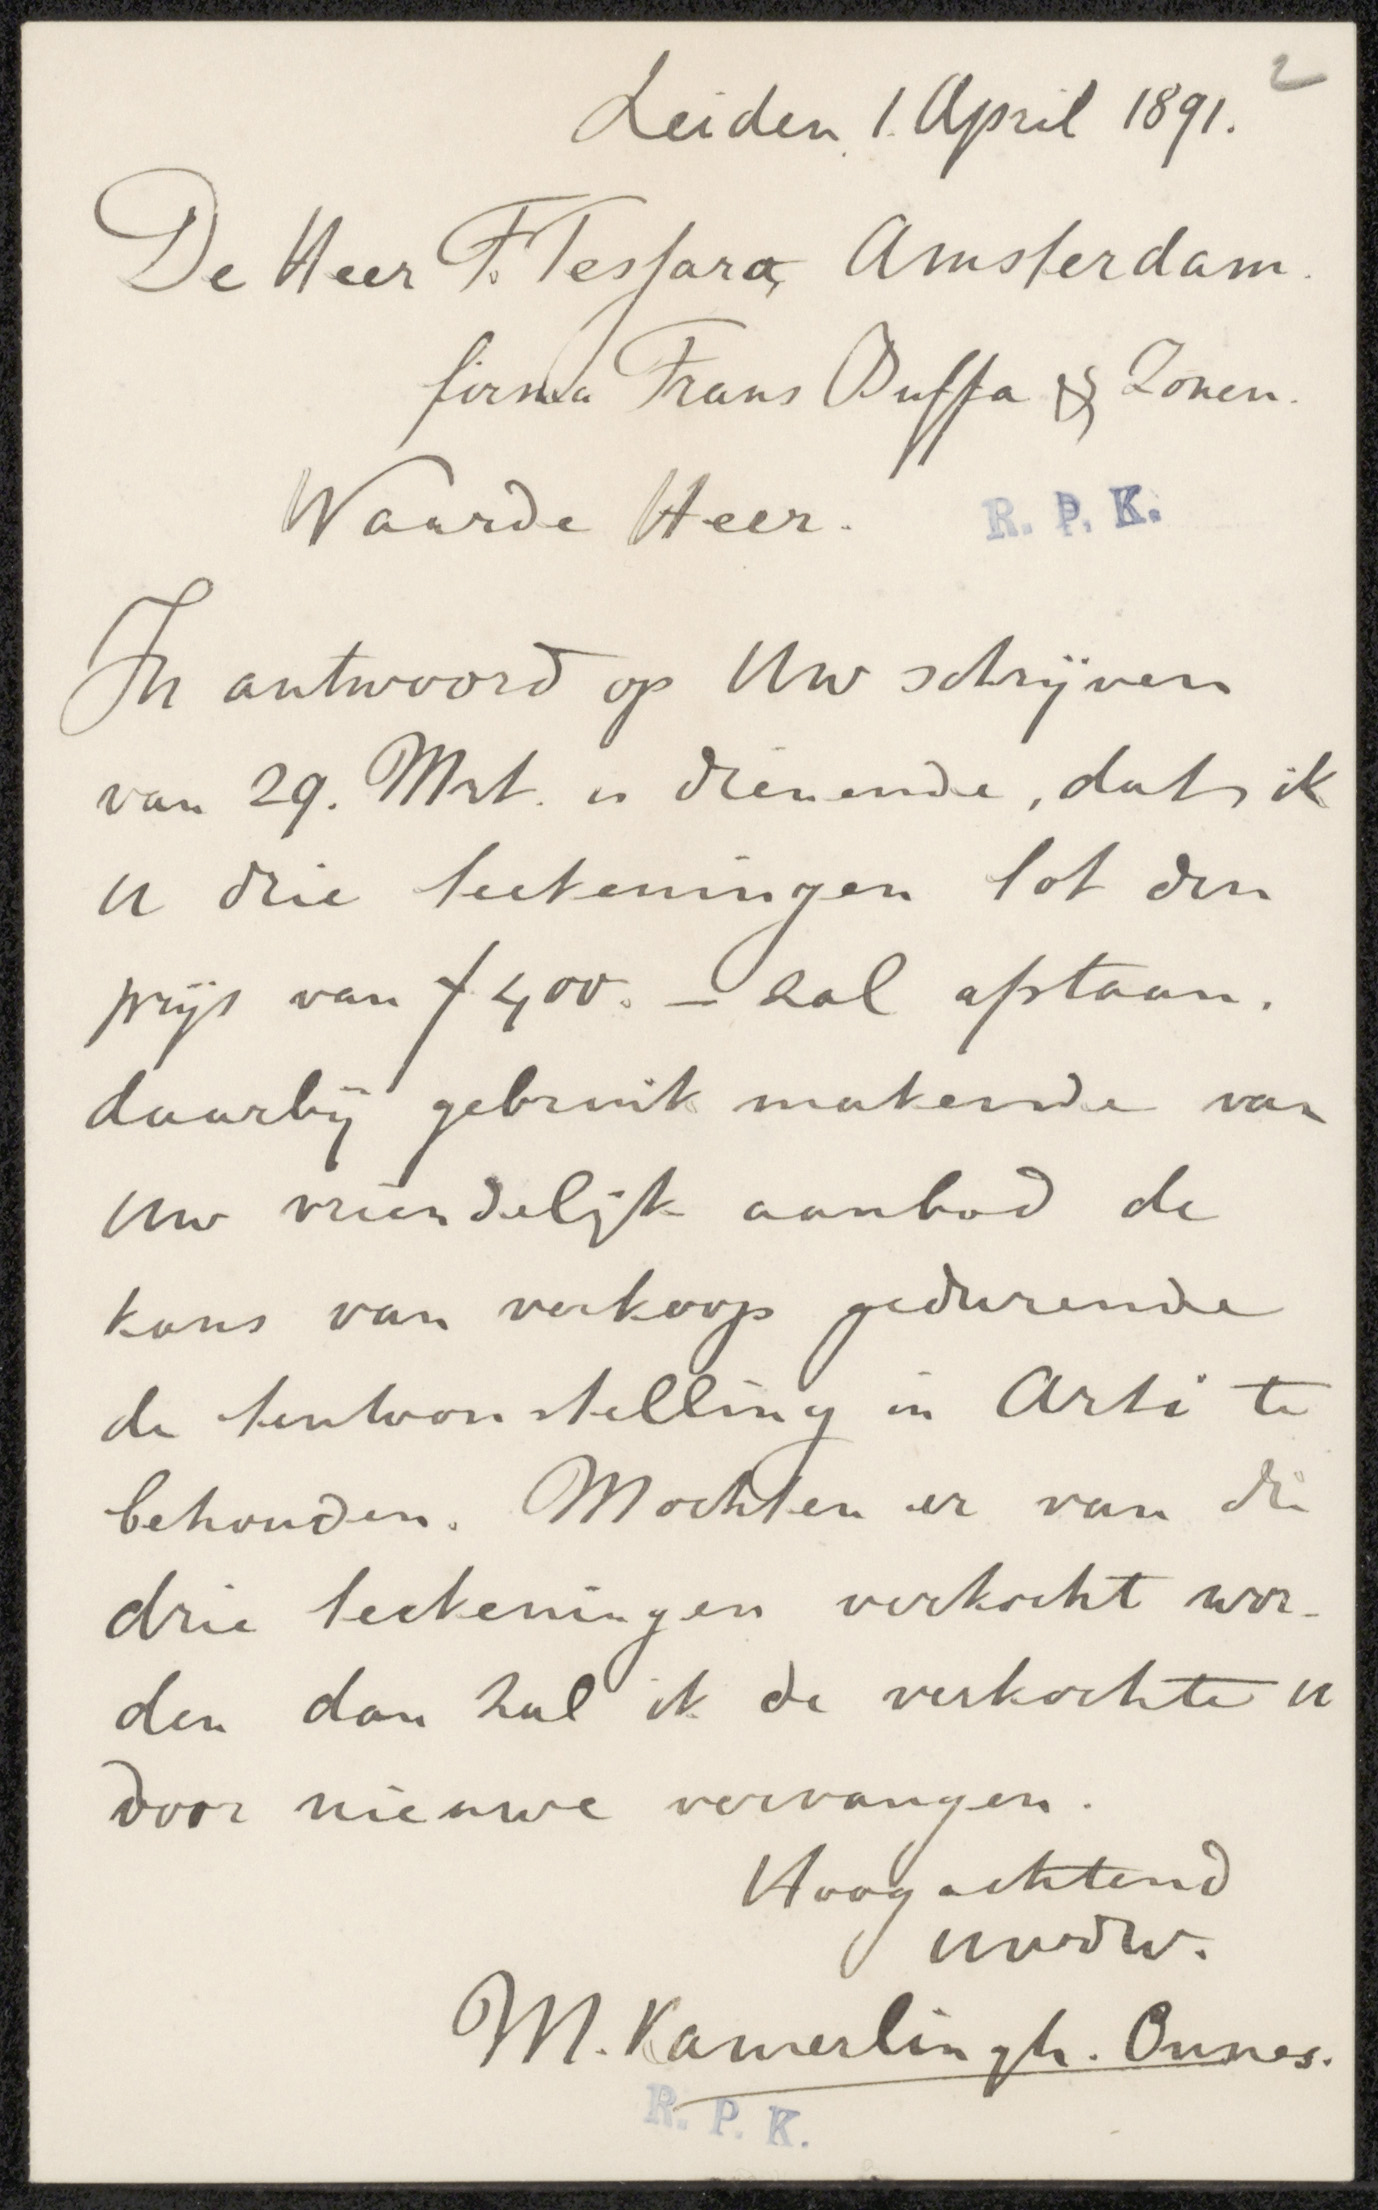 2
Leiden, 1. April 1891.
De Heer F. Tessaro, Amsterdam.
firma Frans Buffa & Zonen.
Waarde Heer.
R. P. K.
In antwoord op Uw schrijven
van 29. Mrt. is dienende, dat ik
u drie teekeningen tot den
prijs van f 400. – zal afstaan.
daarbij gebruik makende van
Uw vriendelijk aanbod de
kans van verkoop gedurende
de tentoonstelling in Arti te
behouden. Mochten er van die
drie teekeningen verkocht wor-
den dan zal ik de verkochte u
door nieuwe vervangen.
Hoogachtend
uwdw.
M. Kamerlingh. Onnes.
R. P. K.